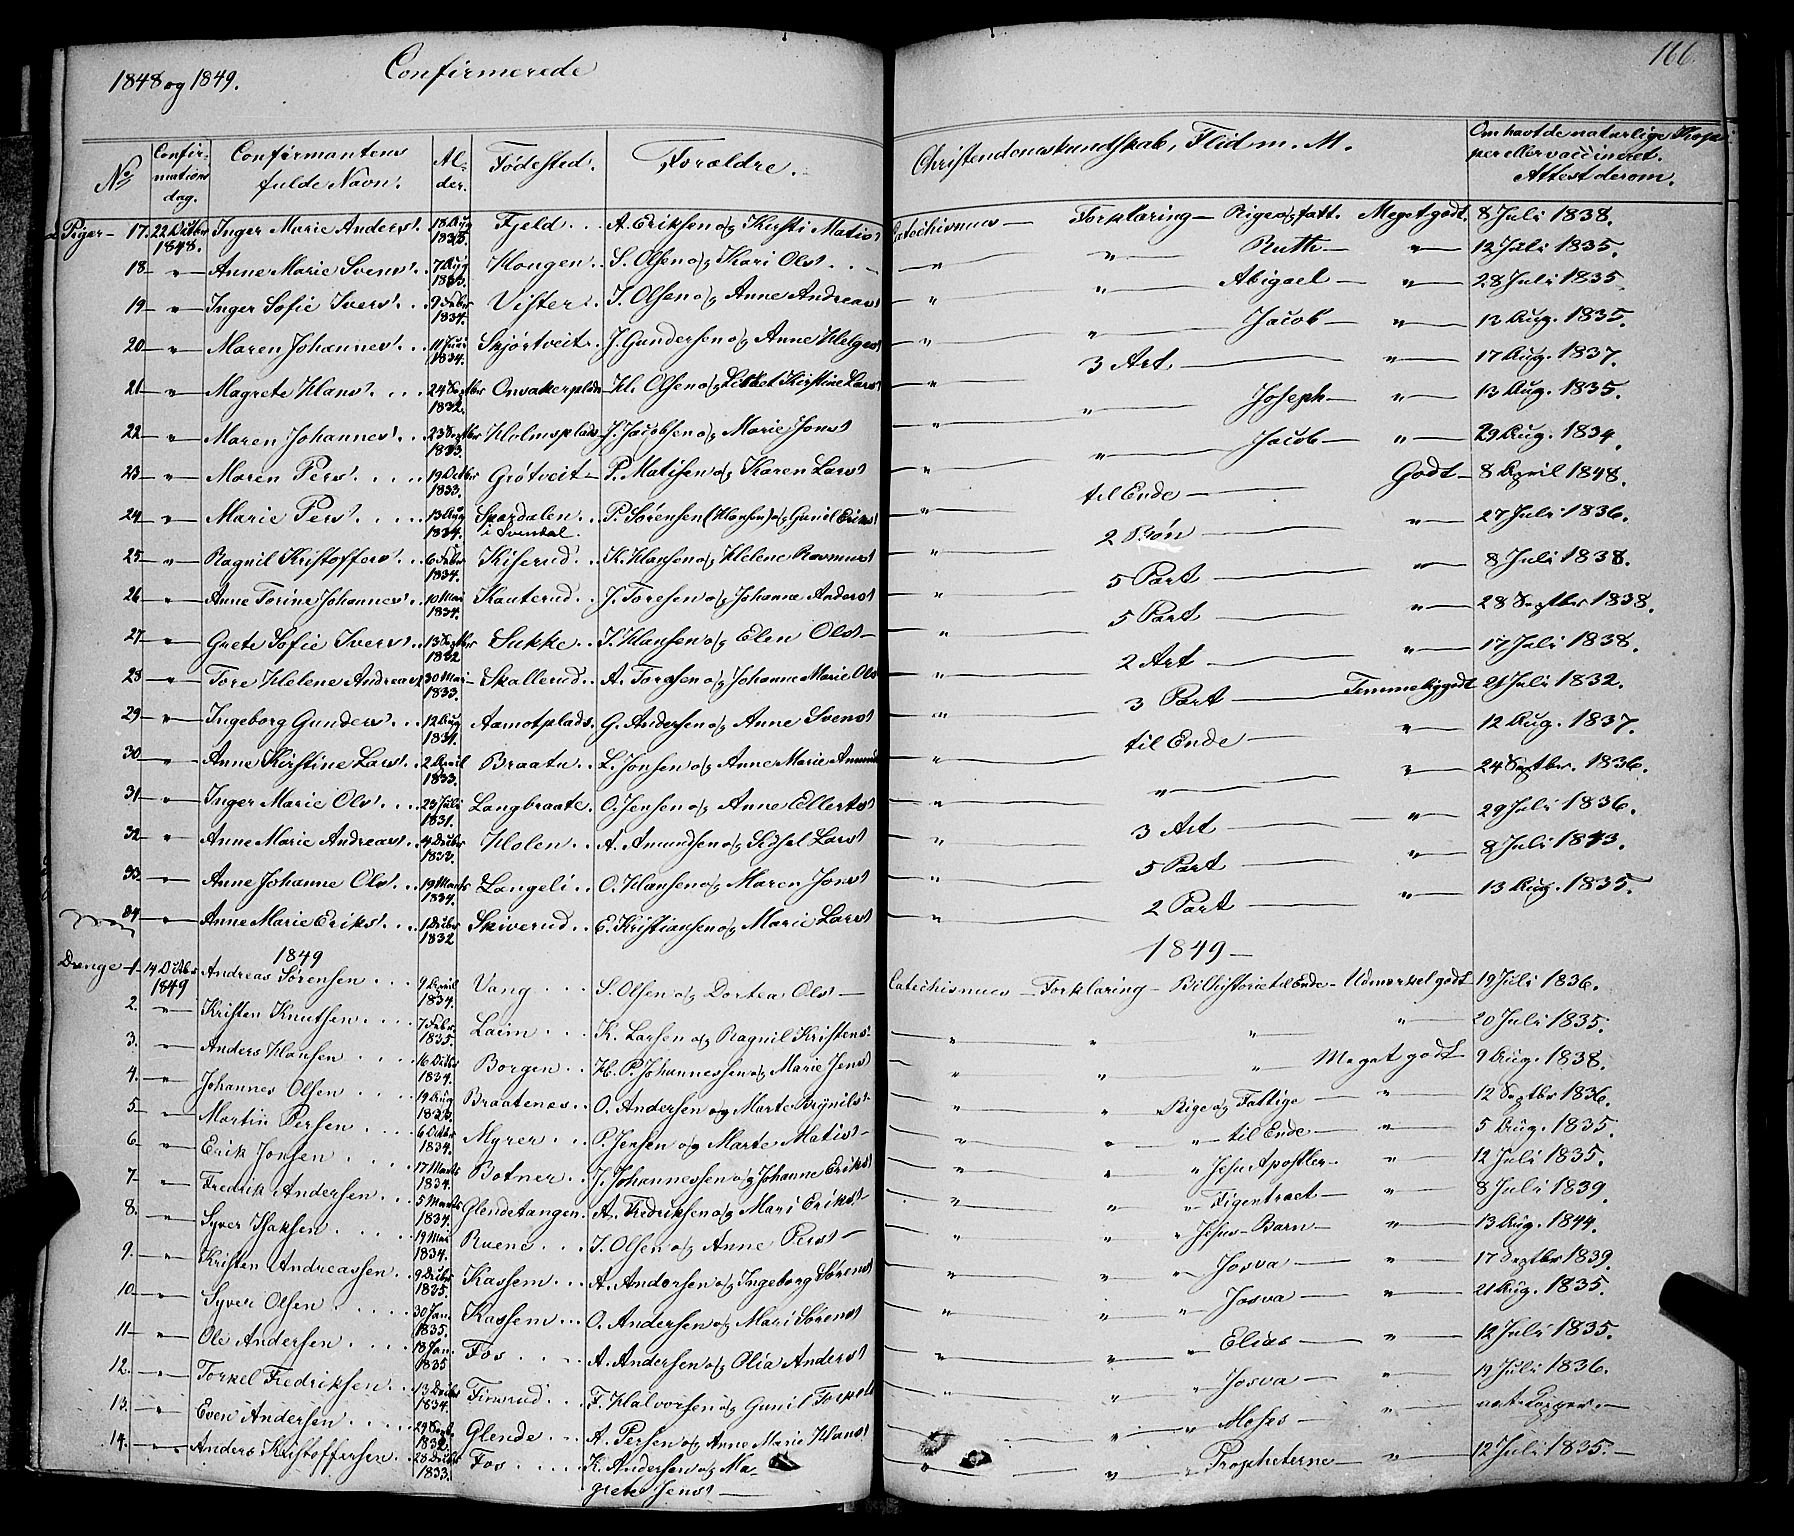 1848 og 1849. Confirmerede 166.
No Confirmations dag. Confirmantens fulde Navn. Alder. Fødested. Forældre. Christendomskundskab, Flid m. M. Om havt de naturlige Kopper eller vaccineret. Attest derom.
Piger 17. 22 Octbr 1848. Inger Marie Anders. 18 Aug 1835. Fjeld A. Eriksen og Kirsti Matis Catechismus Forklaring Rige og fatt. Meget godt. 8 Juli 1838.
18 " Anne Marie Svens. 7 Aug 1833. Hougen S. Olsen og Kari Ols " " Ruth " 12 Juli 1835.
19 " Inger Sofie Ivers. 9 Febr 1834. Vister I. Olsen og Anne Andreas " " Abigael " 28 Juli 1835.
20 " Maren Johannes. 11 Juni 1834. Skjørtveit J. Gundersen og Anne Helges " " Jacob " 13 Aug. 1835.
21 " Magrete Hans. 24 Septbr 1832. Onsakerplads H. Olsen og Lisbet Kirstine Lars " 3 Art " 17 Aug. 1837.
22 " Maren Johannes. 23 Septbr 1833. Holmsplads J. Jacobsen og Marie Jons " " Joseph " 13 Aug. 1835.
23 " Maren Pers. 19 Octbr 1833. Grøtveit P. Matisen og Karen Lars " " Jacob " 29 Aug. 1834.
24 " Marie Pers. 13 Aug 1834. Spardalen i Svendal. P. Sørensen (Hansen) og Gunil Eriks " til Ende Godt 8 April 1848.
25 " Ragnil Kristoffers. 6 Febr 1834. Kiserud. K. Hansen og Helene Rasmus " 2 Bøn " 27 Juli 1836.
26 " Anne Torine Johannes. 10 Mai 1834. Kauterud. J. Toresen og Johanne Anders " 5 Part " 8 Juli 1838.
27 " Grete Sofie Ivers. 13 Septbr 1832 Sukke I. Hansen og Elen Ols " 5 Part " 28 Septbr 1838.
28 " Tore Helene Andreas. 30 Mai 1833. Skallerud A. Toresen og Johanne Marie Ols " 2 Art " 17 Juli 1838.
29 " Ingeborg Gunders. 12 Aug 1831. Aamotplads. G. Andersen og Anne Svens " 3 Part Temmeliggodt 21 Juli 1832.
30 " Anne Kirstine Lars. 2 April 1833. Braatn L. Jonsen og Anne Marie Amund " til Ende " 12 Aug. 1837.
31 " Inger Marie Ols. 23 Juli 1831. Langbraate. O. Jensen og Anne Ellerts " " " 24 Septbr. 1836.
32 " Anne Marie Andreas. 4 Decbr 1833. Holen A. Amundsen og Sidsel Lars " 3 Art " 29 Juli 1836.
33 " Anne Johanne Ols. 19 Marts 1834. Langeli O. Hansen og Maren Jons " 5 Part " 8 Juli 1843.
34 " Anne Marie Eriks. 1 Decbr 1832 Skiverud E. Kristiansen og Marie Lars " 2 Part " 13 Aug. 1835.
1849 1849
Drenge 1. 14 Octbr 1849 Andreas Sørensen 9 April 1834. Vang S. Olsen og Dortea Ols Catechismus Forklaring Bibl.historie til Ende Udmærket godt 19 Juli 1836.
2. " Kristen Knutsen 7 Febr. 1835. Laim K. Larsen og Ragnil Kristens " " " " 20 Juli 1835.
3. " Anders Hansen 16 Octbr 1834. Borgen H. P. Johannessen og Marie Jens " " " Meget godt 9 Aug. 1838.
4. " Johannes Olsen 19 Aug 1833. Braatenes O. Andersen og Marte Brynils " " Rige og Fattige " 12 Septbr 1836.
5. " Martin Persen 6 Octbr 1834. Myrer P. Jensen og Marte Matis " " " til Ende " 5 Aug. 1835.
6. " Erik Jonsen 17 Marts 1834. Botner J. Johannessen og Johanne Eriks " " " Jesu Apostler " 12 Juli 1835.
7. " Fredrik Andersen 5 Marts 1834. Glendetangen A. Fredriksen og Mari Eriks " " " Figentræet " 8 Juli 1839.
8. " Syver Isaksen 19 Mai 1834. Ruene I. Olsen og Anne Pers " " " Jesus Barn " 13 Aug. 1844.
9. " Kristen Andreassen 9 Decbr 1835. Kassem A. Andersen og Ingeborg Sørens " " " Josva " 17 Septbr 1839.
10. " Syver Olsen 30 Jan. 1835. Kassem O. Andersen og Mari Sørens " " " Josva " 21 Aug. 1835.
11. " Ole Andersen 18 Jan. 1835 Fos A. Andersen og Olia Anders " " " Elias " 12 Juli 1835.
12. " Torkel Fredriksen 13 Octbr 1834. Finsrud F. Halvorsen og Gunil " " " Josva " 19 Juli 1836.
13. " Even Andersen 29 Septb. 1832. Glende A. Persen og Anne Marie Hans " " " Moses " nat. Kopper.
14. " Anders Kristoffersen 28 Octbr 1833. Fos K. Andersen og Magrete Jens " " " Propheterne " 12 Juli 1835.